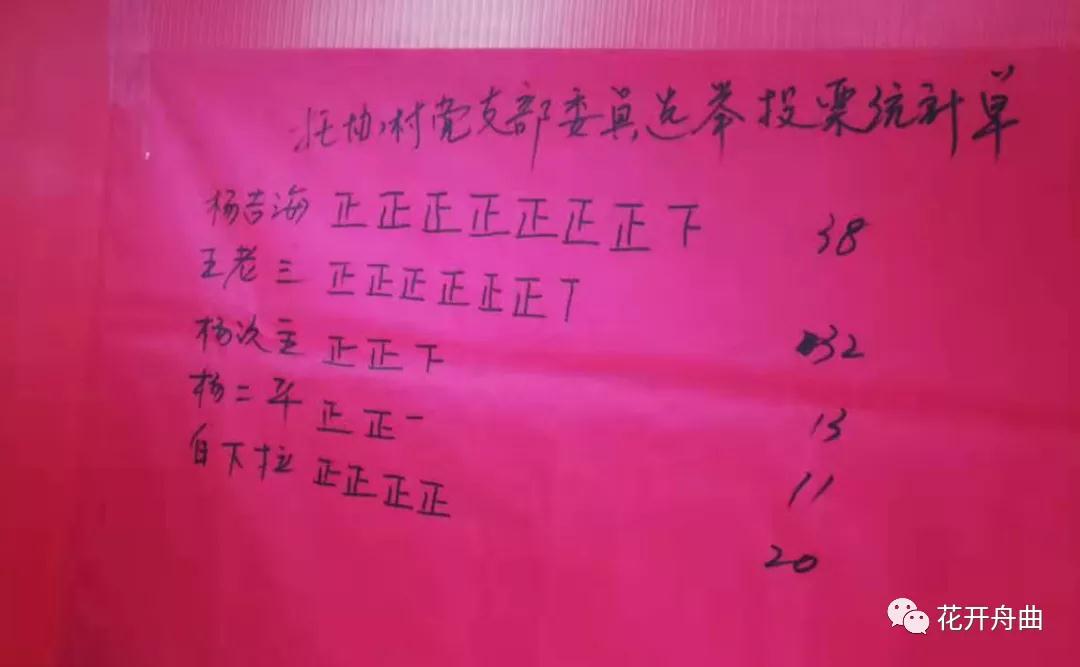 托协村党支部委员选举投票统计单
杨吉海 正正正正正正正下 38
王老三 正正正正正正丅 32
杨次主 正正下 13
杨二平 正正一 11
白下拉 正正正正 20
花开舟曲